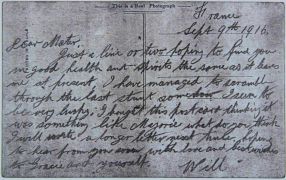 This is a Real Photograph
France
Sept 9th 1916.
Dear Mater.
Just a line or two hoping to find you
in good health and spirits the same as it leaves
me at present, I have managed to scramble
through the last stunt somehow I seem to
be very lucky, I bought this post card thinking it
was something like Marjorie what do you think
I will write a longer letter next time, hoping
to hear from you soon with love and best wishes
to Gracie and yourself.
Will